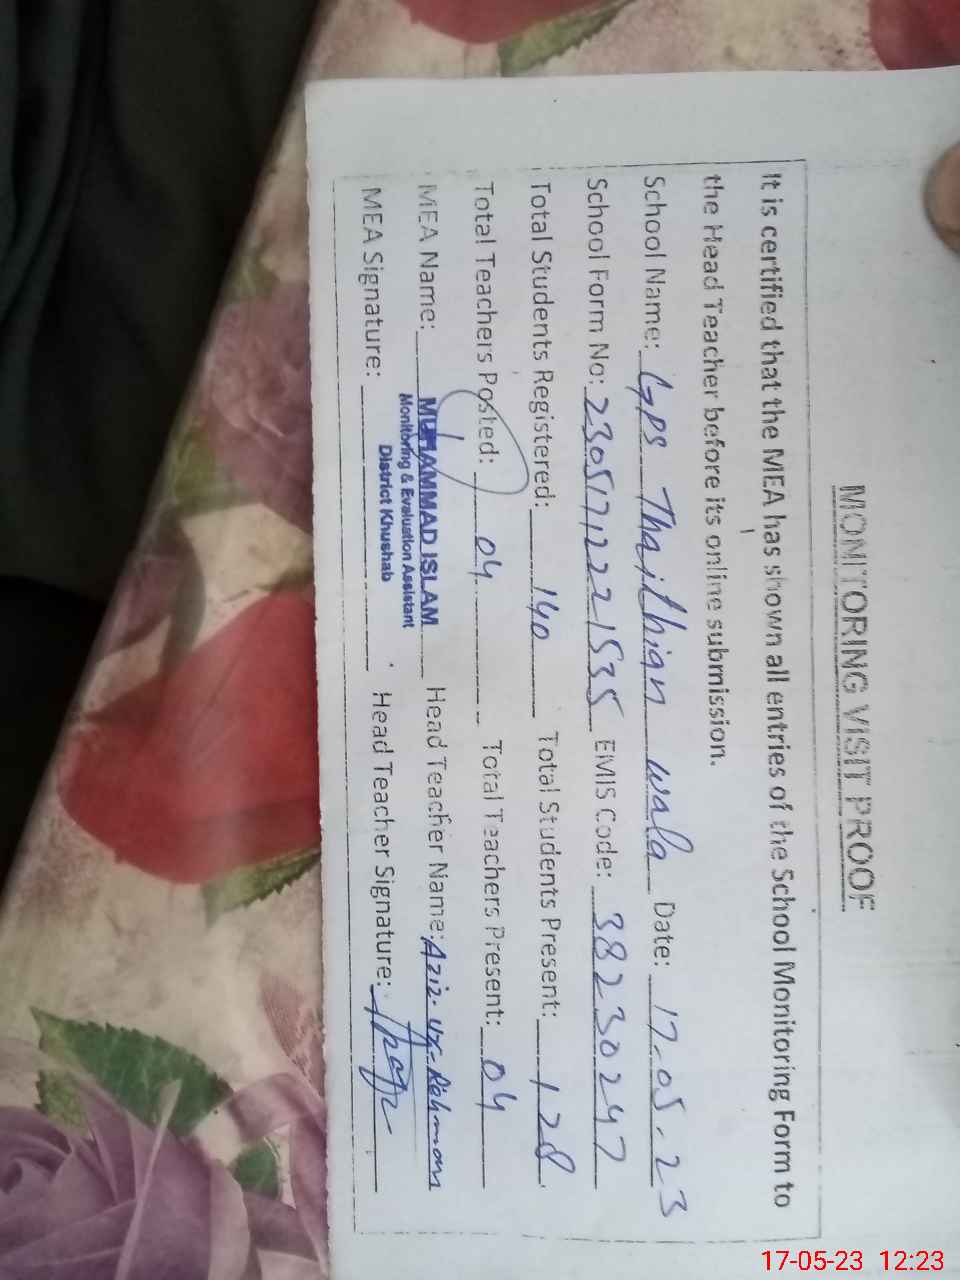 MONITORING VISIT PROOF
It is certified that the MEA has shown all entries of the School Monitoring Form to
the Head Teacher before its online submission.
School Name: GPS Thaithian wala Date: 17-05-23
School Form No: 23051712221535 EMIS Code: 38230247
Total Students Registered: 140 Total Students Present: 128
Total Teachers Posted: 04 Total Teachers Present: 04
MEA Name: MUHAMMAD ISLAM Head Teacher Name: Aziz-ur-Rehman
Monitoring & Evaluation Assistant
District Khushab
MEA Signature: Head Teacher Signature:
17-05-23 12:23